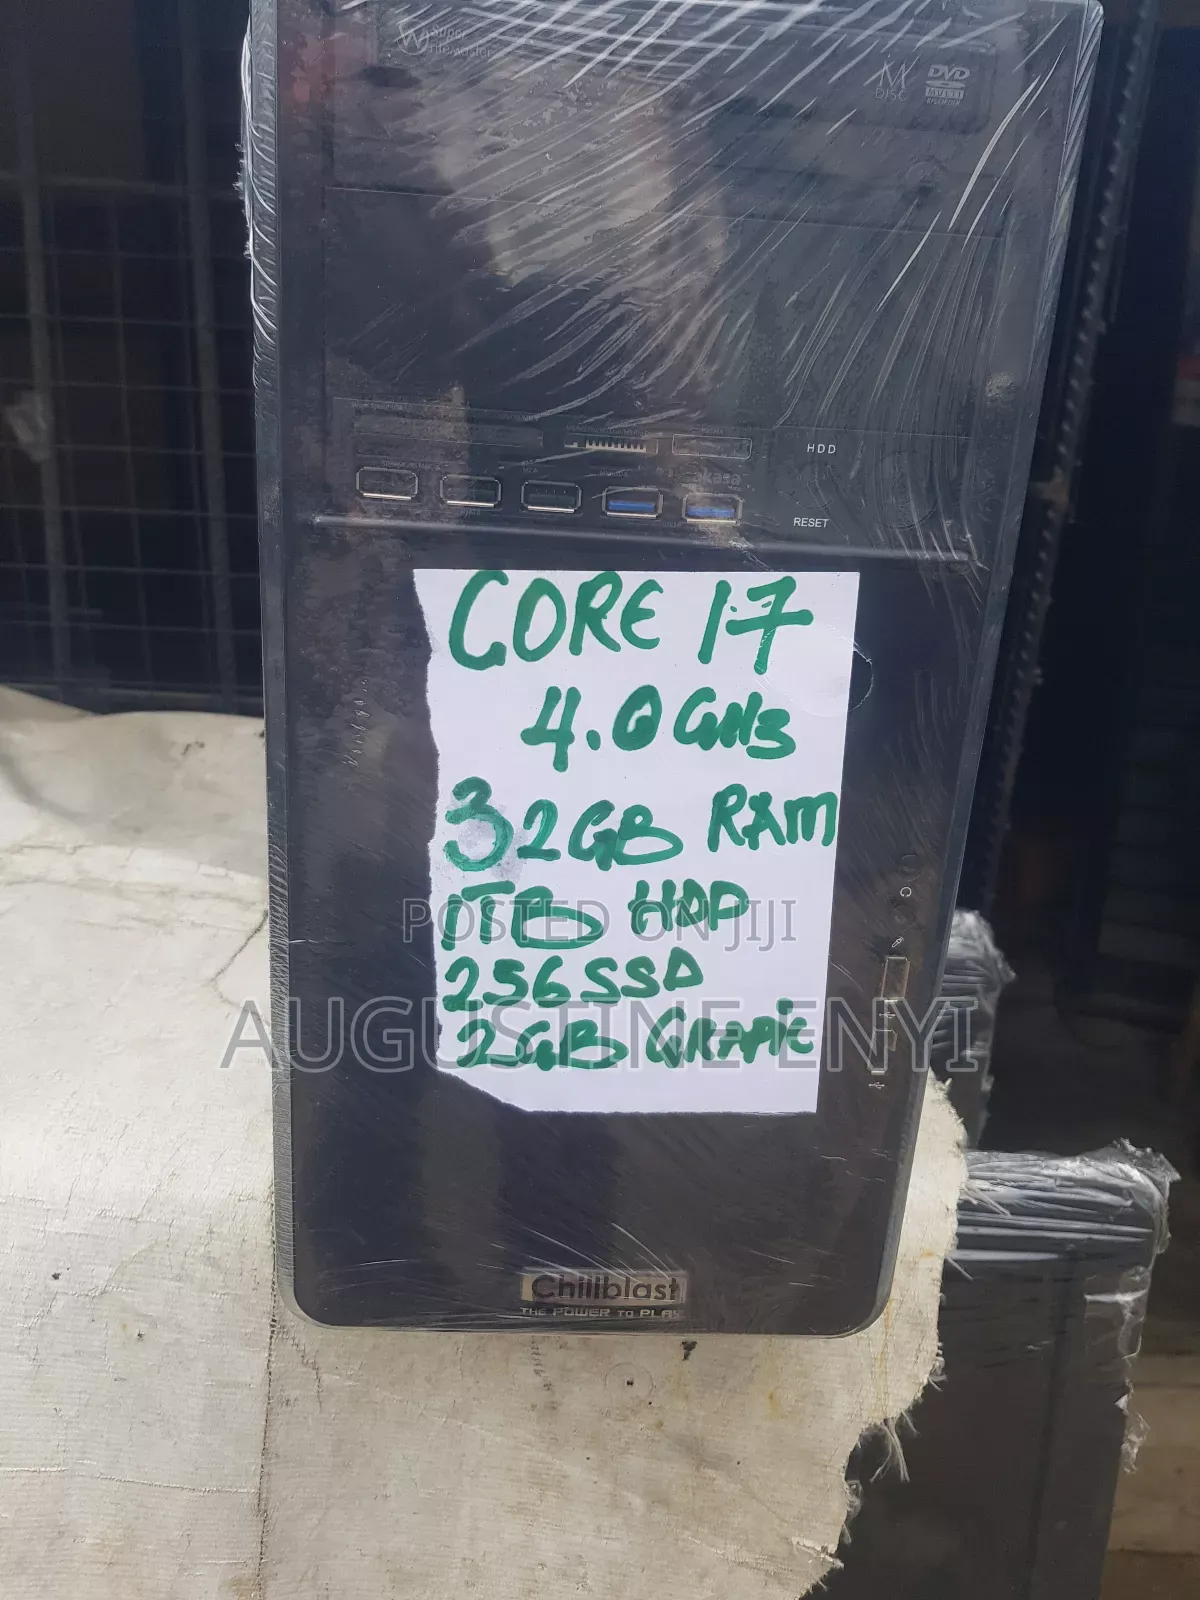 Super
WriteMaster
M
DISC
DVD
MULTI
RECORDER
HDD
akasa
RESET
CORE i7
4.0GHz
32GB RAM
1TB HDD
POSTED ON JIJI
256SSD
AUGUSTINE ENYI
2GB GRAPIC
Chillblast
THE POWER TO PLAY